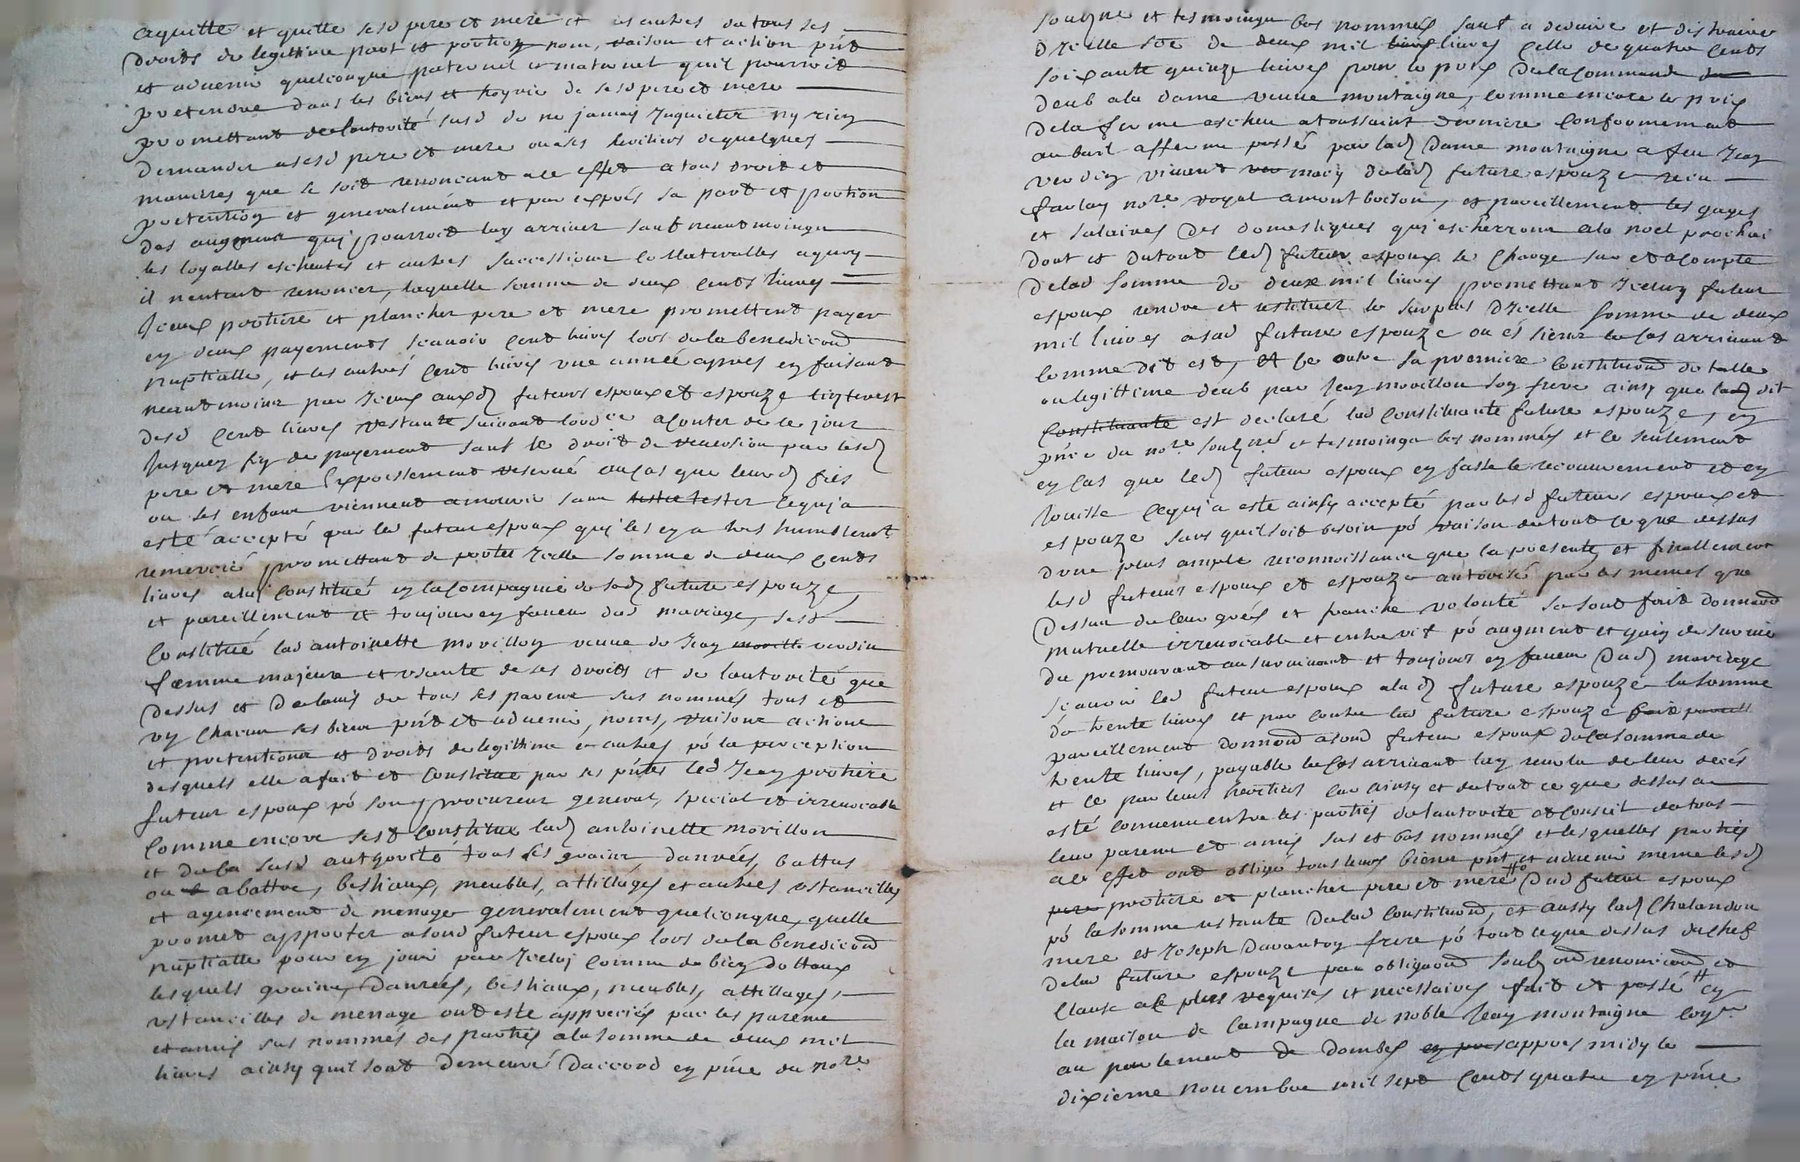 aquitte et quitte sesd pere et mere et les autres de tous ses
droits de legittime part et portion nom, raison et action pñt
et advenir quelconque paternel et maternel quil pourroit
pretendre dans les biens et hoyrie de sesd pere et mere
promettant de lautorité susd de ne jamais Inquieter ny rien
demander a sesd pere et mere ou a ses heritiers de quelques
manieres que se soit renonceant a le effet a tous droit et
pretention et generalement et par exprés sa part et portion
des augment qui pourroit luy arriver sauf neantmoings
les loyalles escheutes et autres successions collateralles aquoy
il nentend renoncer, laquelle somme de deux cents livres
Iceux protiere et plancher pere et mere promettent payer
en deux payements scavoir cent livres lors de la benediction
nuptialle, et les autres cent livres une année apres en faisant
neantmoins par Iceux auxd futurs espoux et espouze linterest
desd cent livres restante suivant lordce aconter de ce jour
jusques fin de payement sauf le droit de reversion par lesd
pere et mere expressement reservé au cas que leurd fils
ou ses enfans viennent a mourir sans tester ce qui a
esté accepté par led futur espoux qui les en a tres humblemt
remercié promettant de porter Icelle somme de deux cents
livres a lui constitué en la compagnie de sad future espouze
et pareillement et toujours en faveur dud mariage, sest
constitué lad antoinette morillon veuve de Jean verdin
femme majeure et usante de ses droits et de lautorité que
dessus et de lavis de tous ses parens sus nommés tous et
un chacun ses biens pñt et advenir, noms, raisons actions
et pretentions et droits de legittime et autres pr la perception
desquels elle a fait et constitué par ses pñtes led Jean protiere
futur espoux pr son procureur general, special et irrevocable
comme encore sest constitué lad antoinette morillon
et de la susd authorité tous ses grains danrées, battus
ou a battre, bestiaux, meubles, attillages et autres ustancilles
et agencement de menage generalement quelconque quelle
promet apporter a sond futur espoux lors de la benediction
nuptialle pour en jouir par Iceluy comme de bien dottaux
lesquels grains, danrées, bestiaux, meubles, attillages,
ustancilles de menage ont este appreciés par les parens
et amis sus nommés des parties a la somme de deux mil
livres ainsy quil sont demeuré daccord en pñce du nore
soubzné et tesmoings bas nommés sauf a deduire et distraire
dIcelle soe de deux mil livres celle de quatre cents
soixante quinze livres pour le prix de la commande
deub a la dame veuve montaigne, comme encore le prix
de la ferme escheu a toussaint derniere conformement
au bail afferme passé par lad dame montaigne a feu Jean
verdin vivant mary de lad future espouze receu
favlay nore royal a montboison, et pareillement les gages
et salaires des domestiques qui escherront a la noel prochai
dont et du tout led futur espoux se charge sur et acompte
de lad somme de deux mil livres promettant Iceluy futur
espoux rendre et restituer le surplus dIcelle somme de deux
mil livres a sad future espouze ou es siens le cas arrivant
comme dit est, et ce outre sa premiere constitution de talle
ou legittime deub par Jean morillon son frere ainsy que lad dit
est declaré lad constituante future espouze, en
pñce du nore soubzné et tesmoings bas nommés et ce seulement
en cas que led futur espoux en fasse le recouvrement et en
jouisse ce qui a este ainsy accepté par lesd futurs espoux et
espouze sans quil soit besoin pr raison de tout ce que dessus
dune plus ample reconnoissance que la presente, et finallement
lesd futurs espoux et espouze autorisé par les memes que
dessus de leur grés et franche volonté se sont fait donnaon
mutuelle irrevocable et entre vif pr augment et gain de survie
du premourant au survivant et toujours en faveur dud mariage
scavoir led futur espoux a lad future espouze la somme
de trente livres et par contre lad future espouze
pareillement donnaon a sond futur espoux de la somme de
trente livres, payable le cas arrivant lan revolu de leur decés
et ce par leurs heritiers car ainsy et de tout ce que dessus a
esté convenu entre les parties de lautorité et conseil de tous
leurs parens et amis sus et bas nommés et lesquelles parties
a ce effet ont obligé tous leurs biens pñt et advenir meme lesd
protiere et plancher pere et mere dud futur espoux
pr la somme restante de lad constituaon, et aussy lad chalandon
mere et Joseph davanton frere pr tout ce que dessus du chef
de lad future espouze par obligaon soubzon renonciaon et
clause a ce plus requises et necessaires fait et passé en
la maison de campagne de noble Jean montaigne coner
au parlement de dombes appres midy le
dixieme novembre mil sept cents quatre en pñce